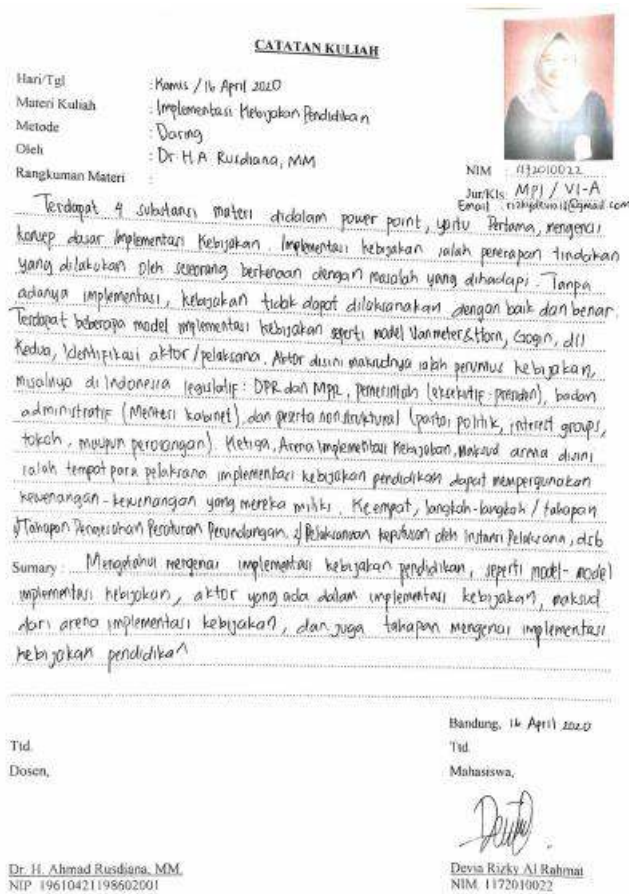 CATATAN KULIAH
Hari/Tgl : Kamis / 16 April 2020
Materi Kuliah : Implementasi Kebijakan Pendidikan
Metode : Daring
Oleh : Dr. H.A Rusdiana, MM
Rangkuman Materi :
NIM : 1172010022
Jur/Kls : MPI / VI-A
Email :
Terdapat 4 substansi materi didalam power point, yaitu Pertama, mengenai
konsep dasar Implementasi Kebijakan. Implementasi kebijakan ialah penerapan tindakan
yang dilakukan oleh seseorang berkenaan dengan masalah yang dihadapi. Tanpa
adanya implementasi, kebijakan tidak dapat dilaksanakan dengan baik dan benar.
Terdapat beberapa model implementasi kebijakan seperti model Vanmeter & Horn, Gogin, dll
Kedua, Identifikasi aktor/pelaksana. Aktor disini maksudnya ialah perumus kebijakan,
misalnya di Indonesia legislatif : DPR dan MPR, pemerintah (eksekutif : presiden), badan
administratif (Menteri kabinet), dan peserta nonstruktural (partai politik, interest groups,
tokoh, maupun perorangan). Ketiga, Arena Implementasi Kebijakan, Maksud arena disini
ialah tempat para pelaksana implementasi kebijakan pendidikan dapat mempergunakan
kewenangan-kewenangan yang mereka miliki. Keempat, langkah-langkah / tahapan
1) Tahapan Pengesahan Peraturan Perundangan. 2) Pelaksanaan keputusan oleh Instansi Pelaksana, dsb
Sumary : Mengetahui mengenai implementasi kebijakan pendidikan, seperti model-model
implementasi kebijakan, aktor yang ada dalam implementasi kebijakan, maksud
dari arena implementasi kebijakan, dan juga tahapan mengenai implementasi
kebijakan pendidikan
Bandung, 16 April 2020
Ttd.
Ttd.
Dosen,
Mahasiswa,
Dr. H. Ahmad Rusdiana, MM.
NIP 19610421198602001
Devia Rizky Al Rahmat
NIM 1172010022